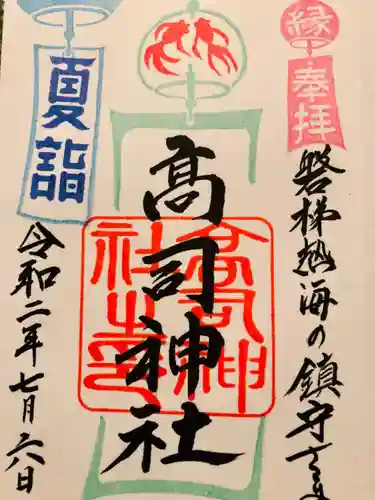 縁
奉拝
磐梯熱海の鎮守さま
高司神社
夏詣
令和二年七月六日